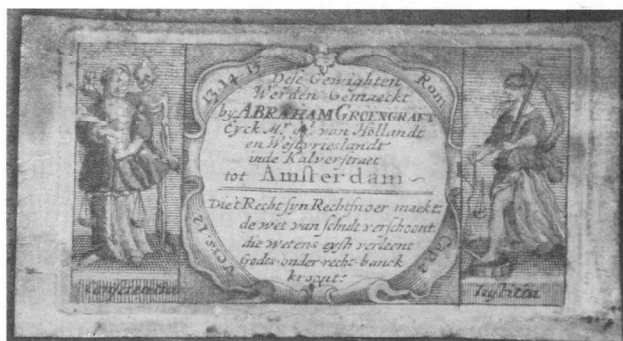 13. 14. 15 Rom
Dese Gewighten
Werden Gemaeckt
by ABRAHAM GROENGRAFT
Eyck Mr. gl. van Hollandt
en Westvrieslandt
inde Kalverstraet
tot Amsterdam
Die't Recht syn Rechtsnoer maekt:
de wet van schult verschoont
die wetens eysh verleent
Godts-onder-recht-banck
kroont:
Vers. 12 Cap. 2
Conscientia
Iustitia